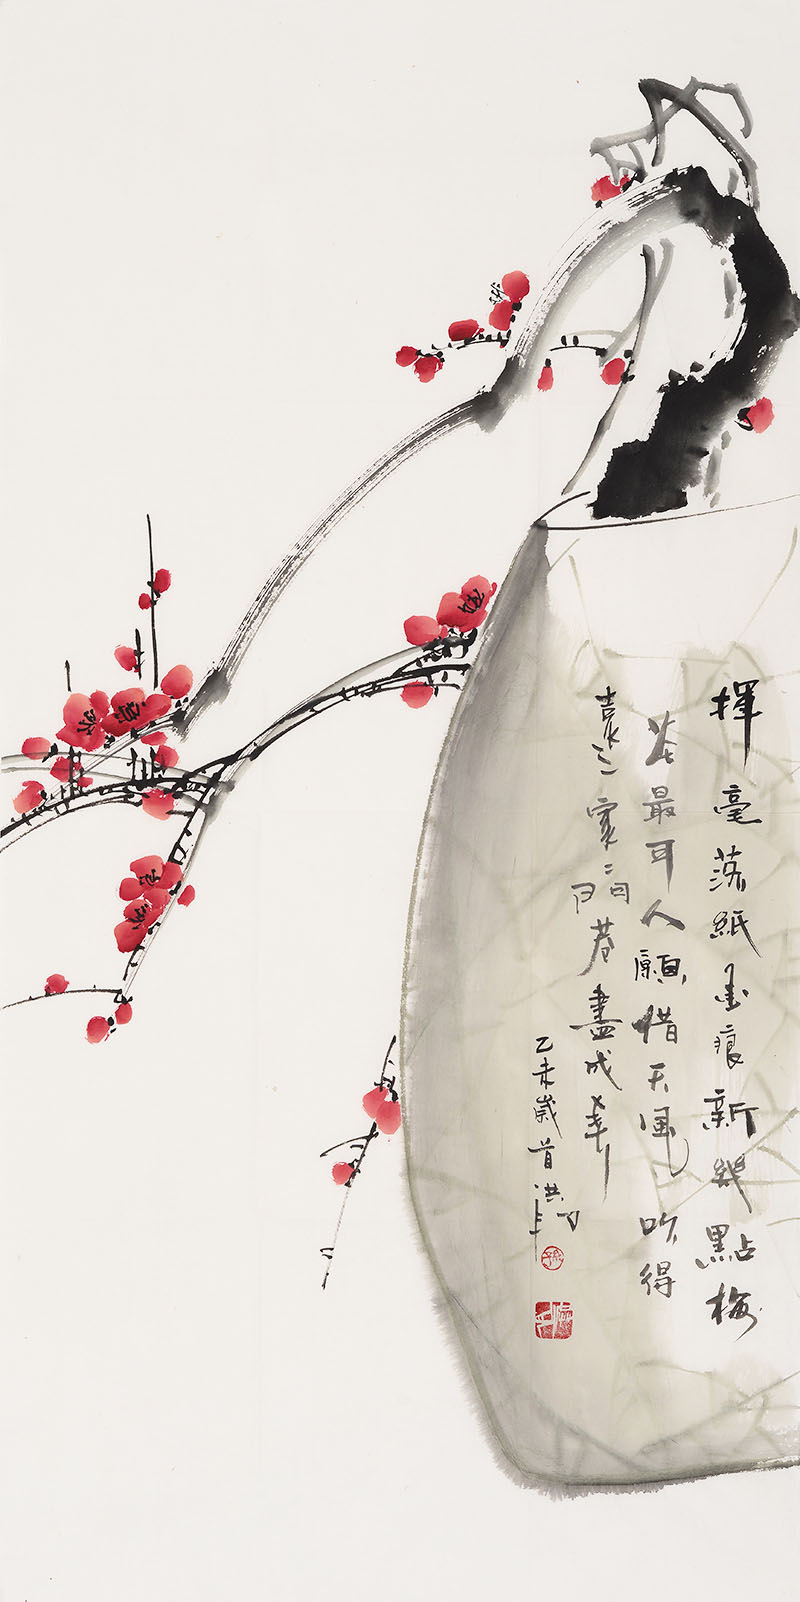 揮毫落紙墨痕新幾點梅
花最可人願借天風吹得
遠家々門巷盡成春
乙未歲首洪